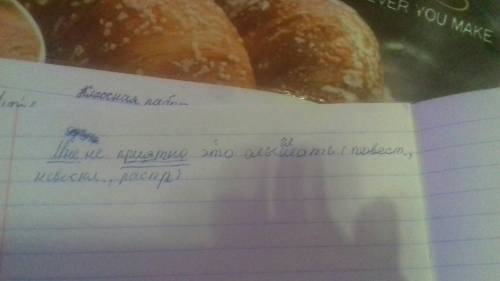 EVER YOU MAKE
Классная рабо
Мне не приятно это слышать (повест.,
невоскл., распр.)